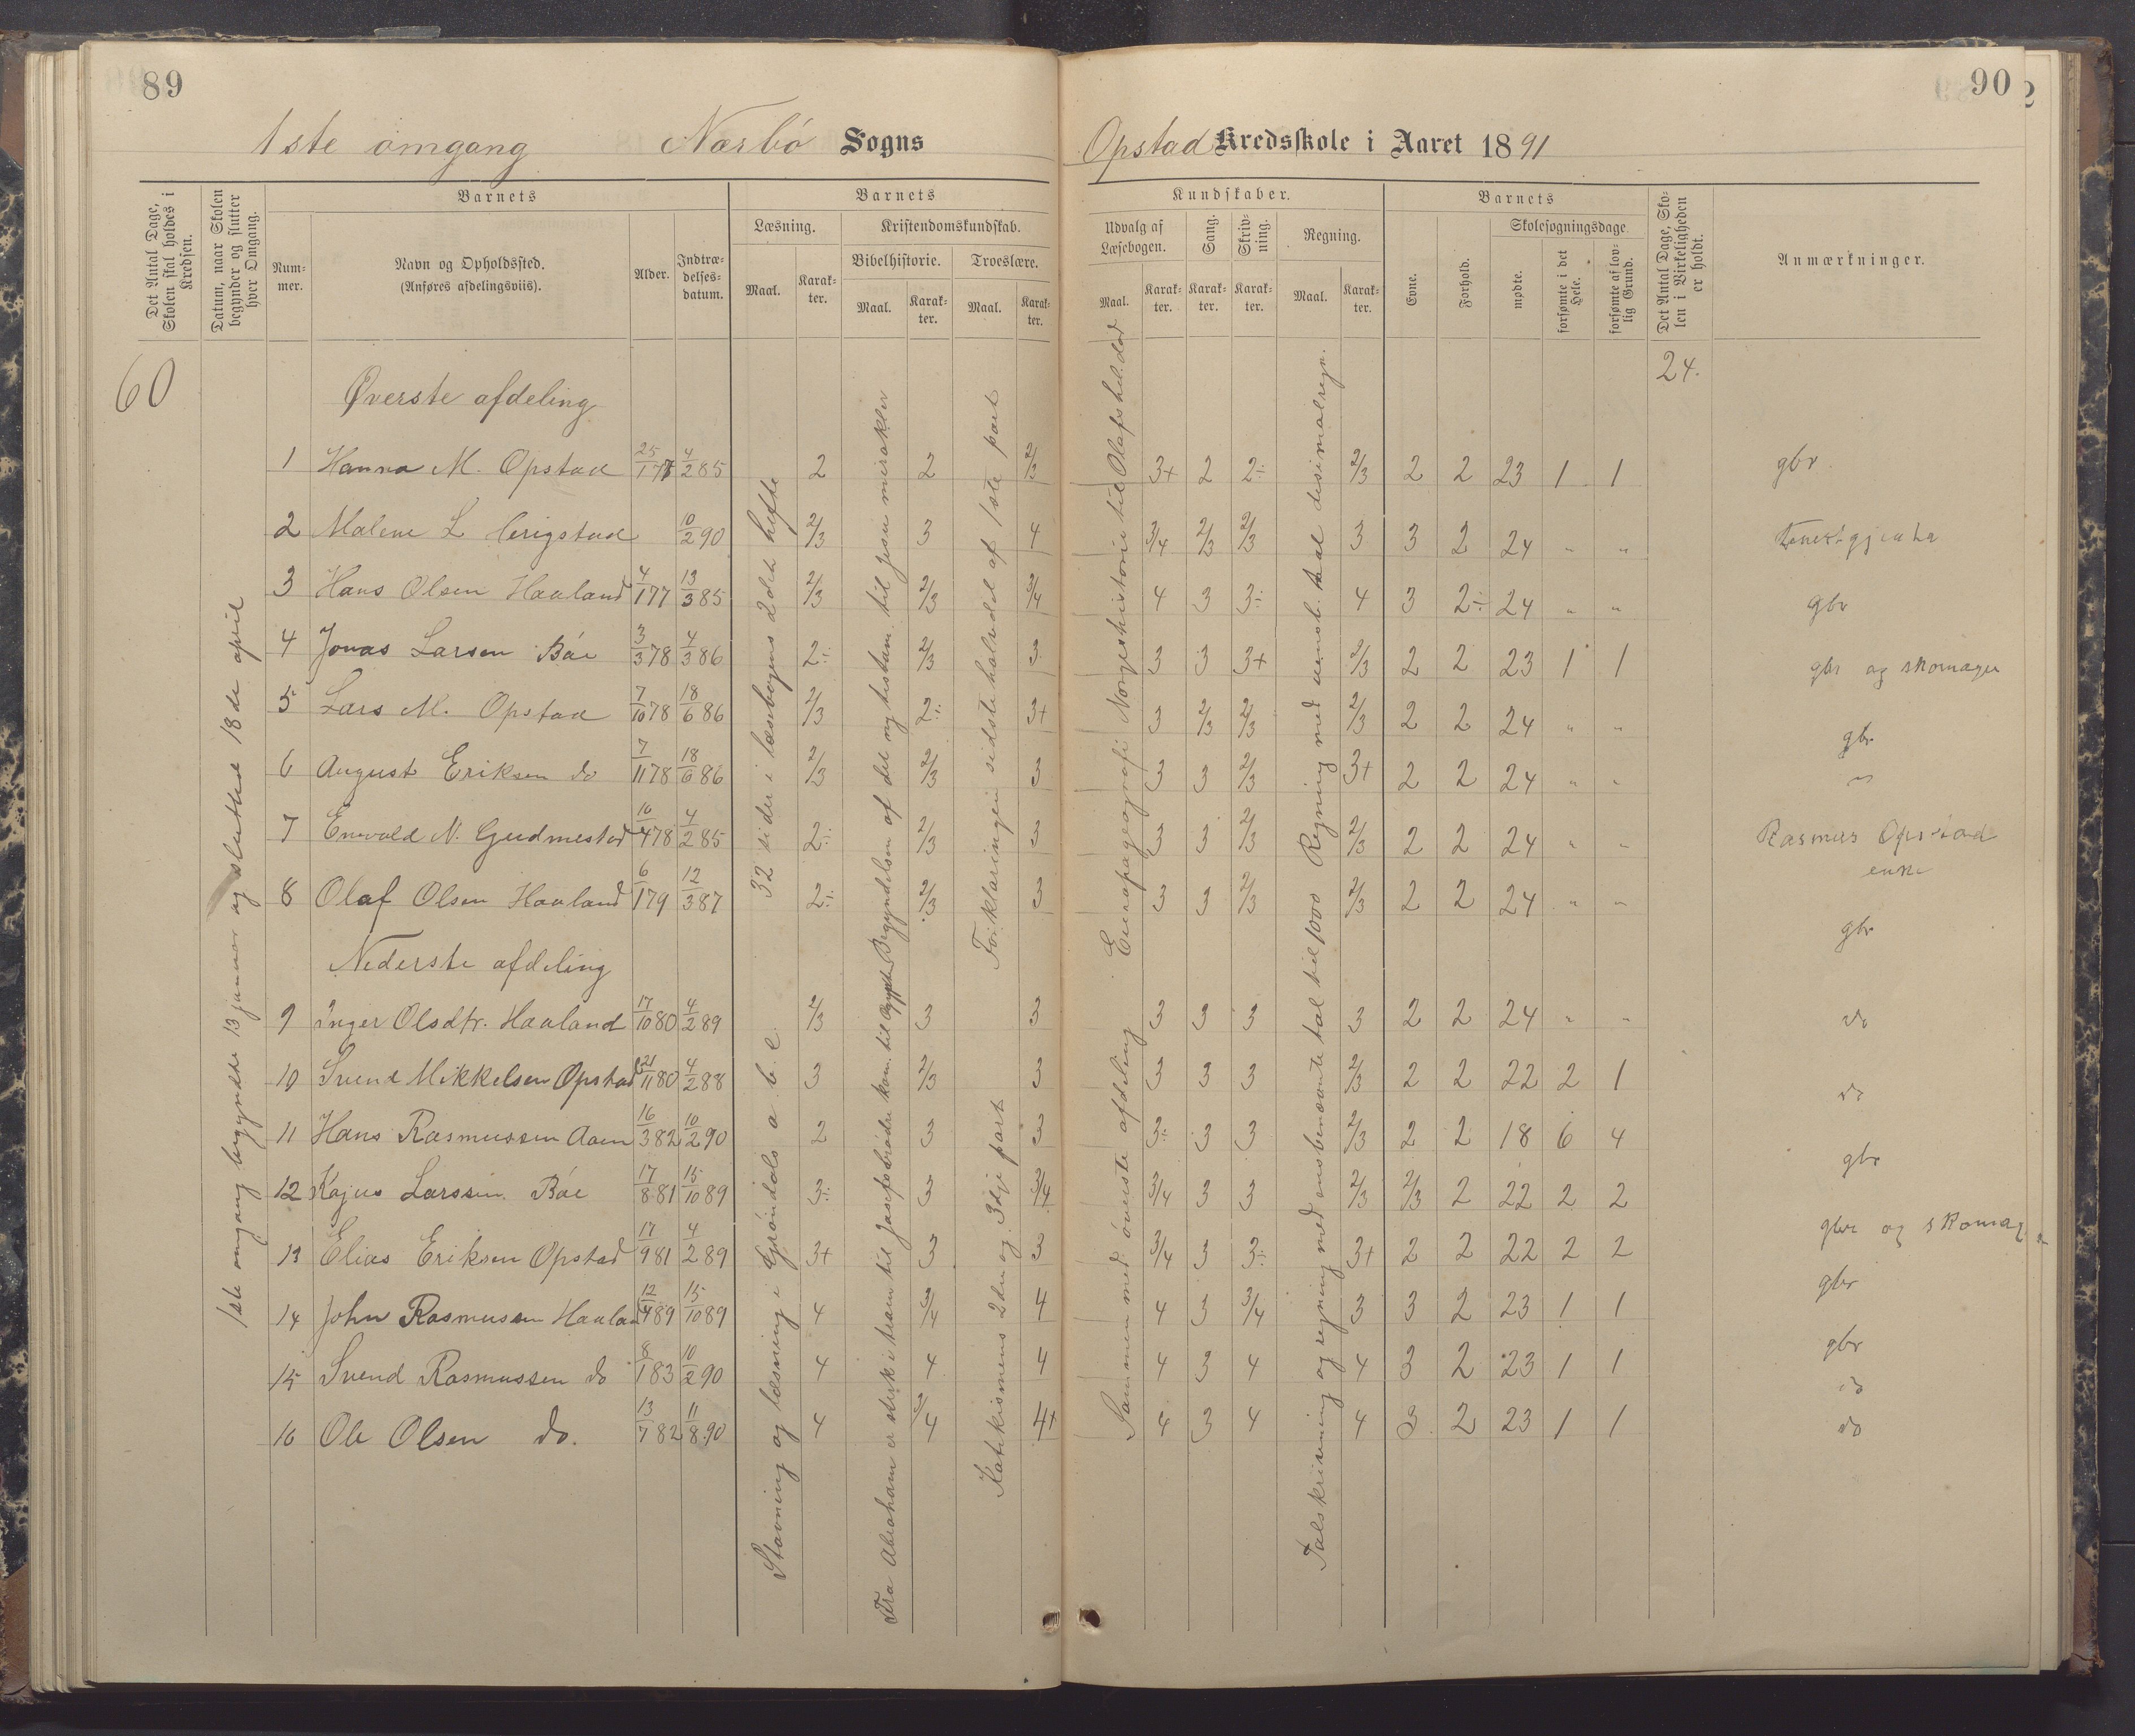 89
90
1ste omgang Nærbö Sogns
Opstad Kredsskole i Aaret 1891
Det Antal Dage, Skolen skal holdes i Kredsen.
Datum, naar Skolen begynder og slutter hver Omgang.
Barnets
Num-mer.
Navn og Opholdssted. (Anføres afdelingsviis).
Alder.
Indtræ-delses-datum.
Barnets
Læsning.
Maal. Karak-ter.
Kristendomskundskab.
Bibelhistorie. Troeslære.
Maal. Karak-ter. Maal. Karak-ter.
Kundskaber.
Udvalg af Læsebogen.
Maal. Karak-ter.
Sang. Karak-ter.
Skriv-ning. Karak-ter.
Regning.
Maal. Karak-ter.
Barnets
Evne. Forhold.
Skolesøgningsdage.
mødte. forsømte i det Hele. forsømte af lov-lig Grund.
Det Antal Dage, Sko-len i Virkeligheden er holdt.
Anmærkninger.
60
24.
1ste omgang begyndte 13 januar og sluttede 18de april
32 sider i læsebogens 2det hefte
Begyndelsen af det ny testam. til Jesu mirakler
Forklaringen sidste halvdel af 1ste part
Europageografi Norgeshistorie til Olafshel. död
Regning med uensb. tal desimalregn.
Øverste afdeling
1 Hanna M. Opstad 25/1 77 4/2 85 2 2 2/3 3+ 2 2÷ 2/3 2 2 23 1 1 gbr.
2 Malene L. Erigstad 10/2 90 2/3 3 4 3/4 2/3 2/3 3 3 2 24 " "
3 Hans Olsen Haaland 4/1 77 13/3 85 2/3 2/3 3/4 4 3 3÷ 4 3 2÷ 24 " " gbr
4 Jonas Larsen Böe 3/3 78 4/3 86 2÷ 2/3 3 3 3 3+ 2/3 2 2 23 1 1 gbr og skomager
5 Lars M. Opstad 7/10 78 18/6 86 2/3 2÷ 3+ 3 2/3 2/3 2/3 2 2 24 " " gbr
6 August Eriksen do 7/11 78 18/6 86 2/3 2/3 3 3 3 2/3 3+ 2 2 24 " " "
7 Enevald N. Gudmestad 10/4 78 4/2 85 2÷ 2/3 3 3 3 2/3 2/3 2 2 24 " " Rasmus Opstad enke
8 Olaf Olsen Haaland 6/1 79 12/3 87 2÷ 2/3 3 3 3 2/3 2/3 2 2 24 " " gbr
Nederste afdeling
9 Inger Olsdtr. Haaland 17/10 80 4/2 89 2/3 3 3 3 3 3 3 2 2 24 " " do
10 Svend Mikkelsen Opstad 21/11 80 4/2 88 3 2/3 3 3 3 3 2/3 2 2 22 2 1 do
11 Hans Rasmussen Aam 16/3 82 10/2 90 2 3 3 3÷ 3 3 2/3 2 2 18 6 4 gbr
12 Kajus Larssen Böe 17/8 81 15/10 89 3÷ 3 3/4 3/4 3 3 2/3 2/3 2 22 2 2 gbr og skomag
13 Elias Eriksen Opstad 17/9 81 4/2 89 3+ 3 3 3/4 3 3÷ 3+ 2 2 22 2 2 gbr
14 John Rasmussen Haaland 89 15/10 89 4 3/4 4 4 3 3/4 3 3 2 23 1 1 gbr
15 Svend Rasmussen do 8/1 83 10/2 90 4 4 4 4 3 4 4 3 2 23 1 1 do
16 Ole Olsen do. 13/7 82 11/8 90 4 3/4 4+ 4 3 4 4 3 2 23 1 1 do
Stavning og læsning i Gröndals a b c
Fra Abraham er sterk i troen til Josefs brödre kom. til Egypten
Katekismens 2den og 3dje part
Sammen med överste afdeling
Talskrivning og regning med ensbenævnte tal til 1000